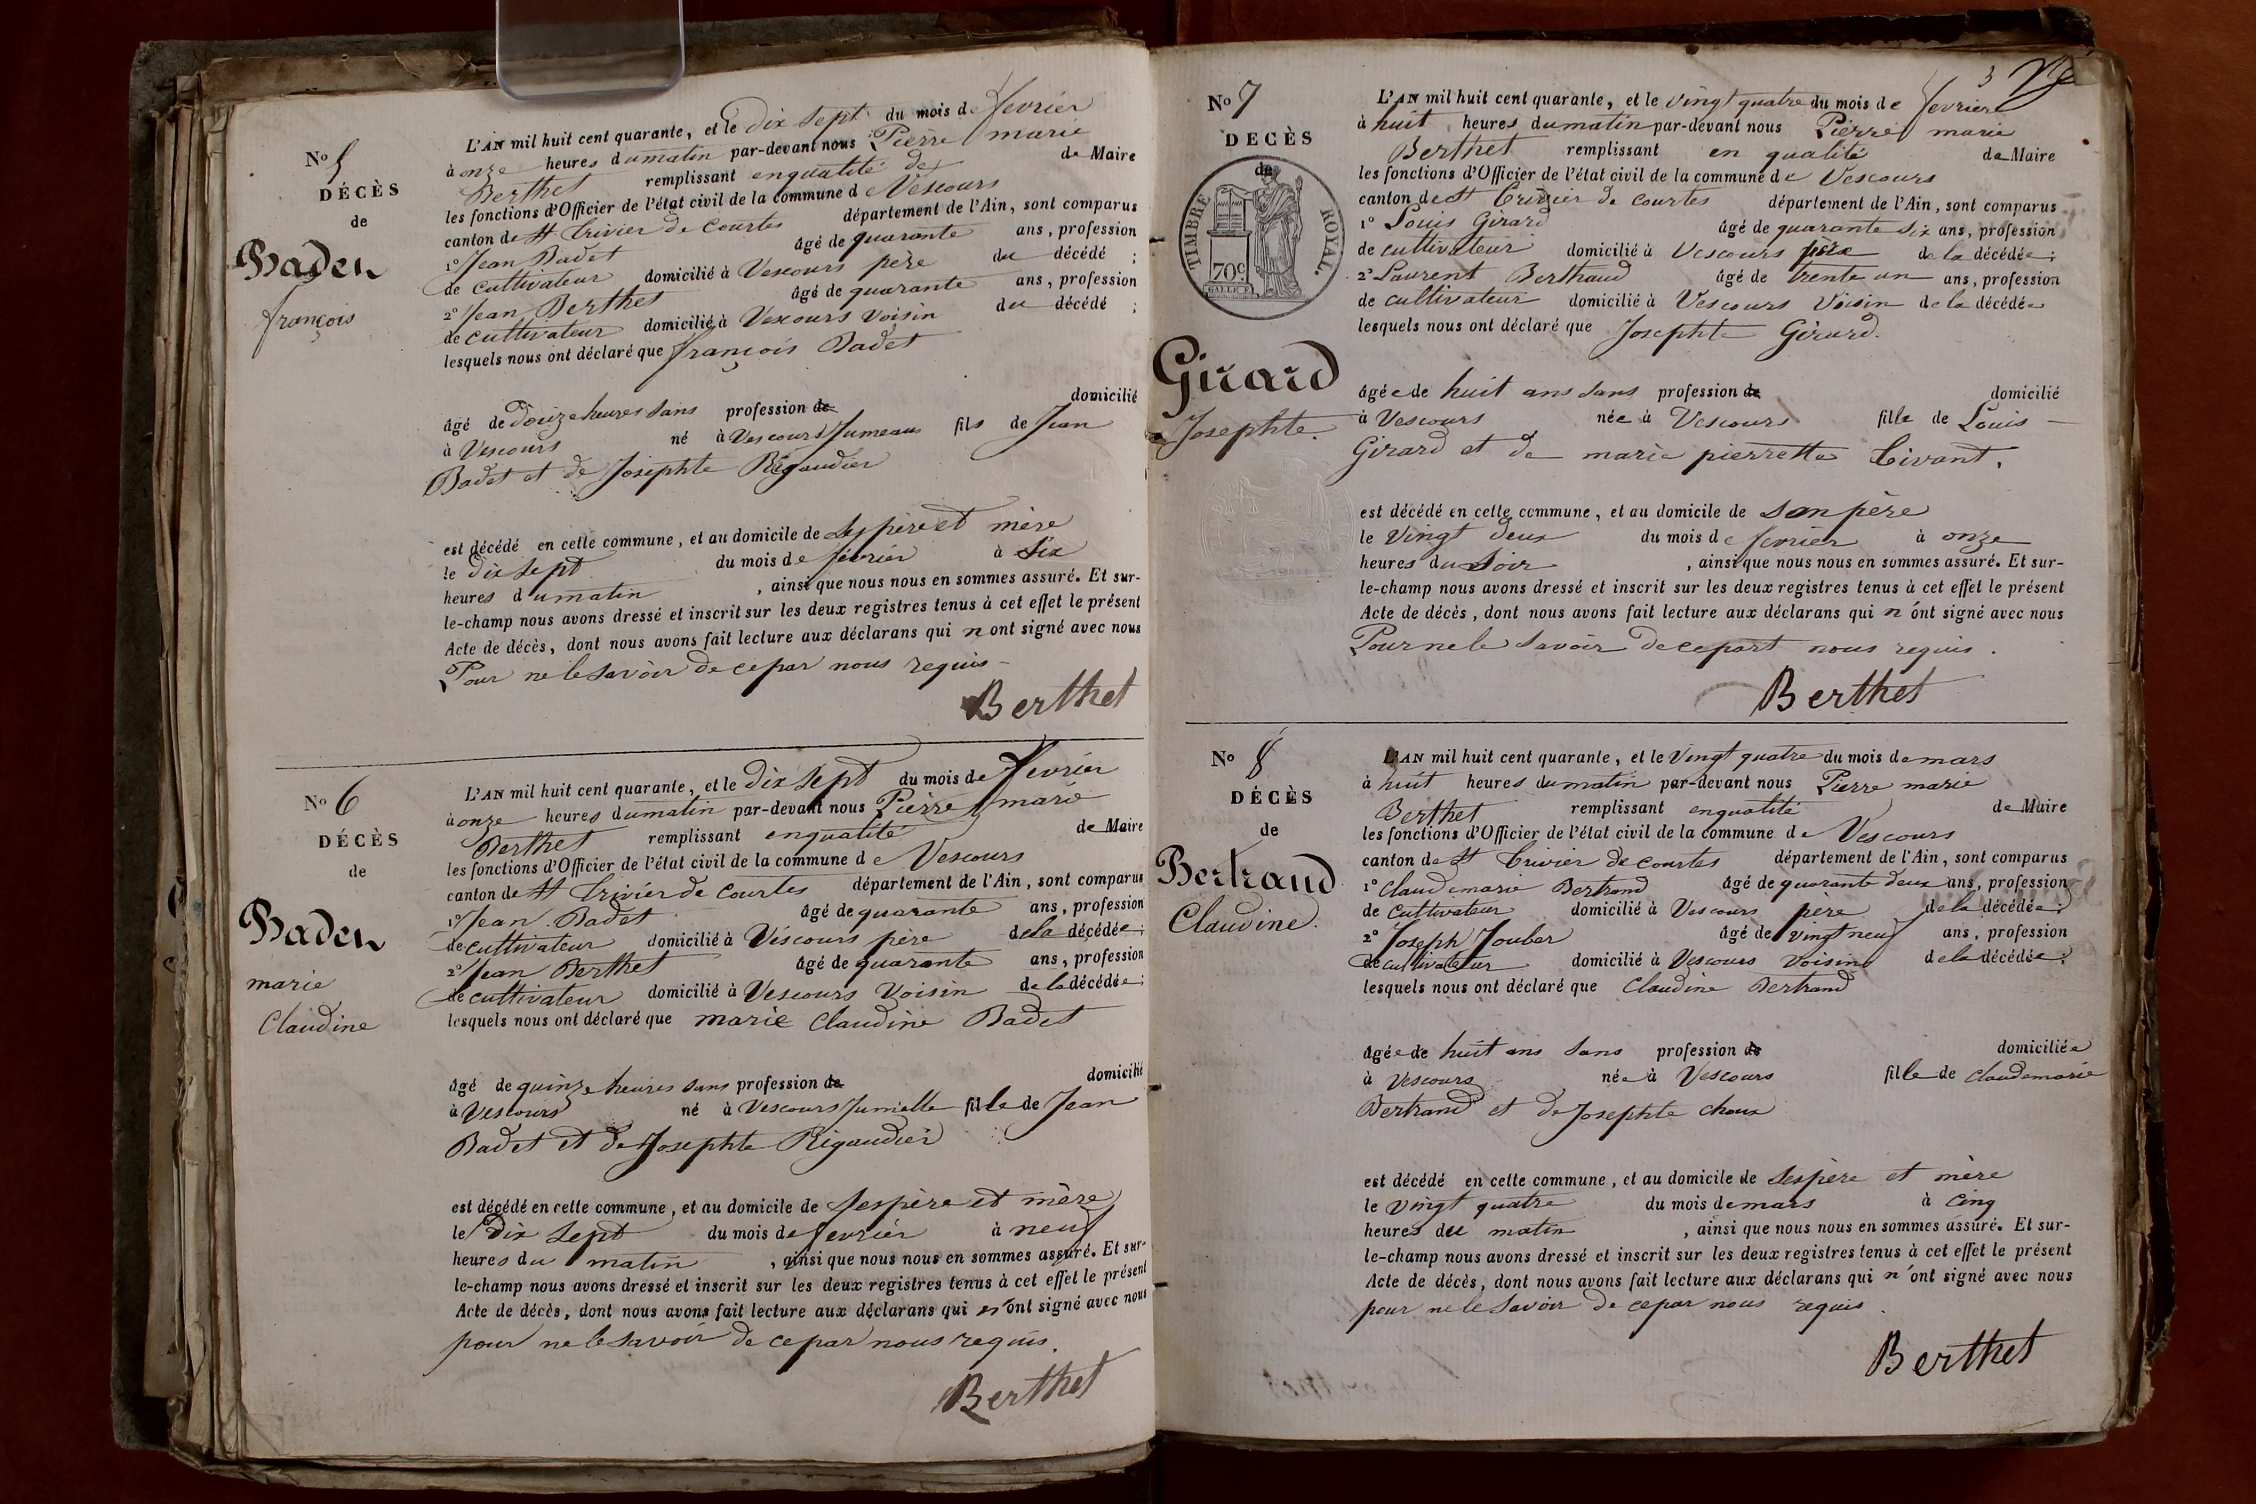 No 5
DÉCÈS
de
Baden
françois
L'AN mil huit cent quarante, et le dix sept du mois de fevrier
à onze heures du matin par-devant nous Pierre marie
Berthet remplissant en qualité de de Maire
les fonctions d'Officier de l'état civil de la commune de Vescours
canton de St trivier de courtes département de l'Ain, sont comparus
1° Jean Badet âgé de quarante ans, profession
de cultivateur domicilié à Vescours père du décédé ;
2° Jean Berthet âgé de quarante ans, profession
de cultivateur domicilié à Vescours voisin du décédé ;
lesquels nous ont déclaré que françois Badet
âgé de douze heures sans profession de domicilié
à Vescours né à Vescours Jumeau fils de Jean
Badet et de Josephte Rigaudier
est décédé en cette commune, et au domicile de ses père et mère
le dix sept du mois de fevrier à six
heures du matin, ainsi que nous nous en sommes assuré. Et sur-
le-champ nous avons dressé et inscrit sur les deux registres tenus à cet effet le présent
Acte de décès, dont nous avons fait lecture aux déclarans qui n ont signé avec nous
Pour ne le savoir de ce par nous requis
Berthet
No 6
DÉCÈS
de
Baden
marie
Claudine
L'AN mil huit cent quarante, et le dix sept du mois de fevrier
à onze heures du matin par-devant nous Pierre marie
Berthet remplissant en qualité de Maire
les fonctions d'Officier de l'état civil de la commune de Vescours
canton de St trivier de courtes département de l'Ain, sont comparus
1° Jean Badet âgé de quarante ans, profession
de cultivateur domicilié à Vescours père de la décédée ;
2° Jean Berthet âgé de quarante ans, profession
de cultivateur domicilié à Vescours voisin de la décédée ;
lesquels nous ont déclaré que marie Claudine Badet
âgé de quinze heures sans profession de domicilié
à Vescours né à Vescours Jumelle fille de Jean
Badet et de Josephte Rigaudier
est décédé en cette commune, et au domicile de ses père et mère
le dix sept du mois de fevrier à neuf
heures du matin, ainsi que nous nous en sommes assuré. Et sur-
le-champ nous avons dressé et inscrit sur les deux registres tenus à cet effet le présent
Acte de décès, dont nous avons fait lecture aux déclarans qui n'ont signé avec nous
pour ne le savoir de ce par nous requis.
Berthet
3
No 7
DECÈS
de
TIMBRE ROYAL.
70c
Girard
Josephte.
L'AN mil huit cent quarante, et le vingt quatre du mois de fevrier
à huit heures du matin par-devant nous Pierre marie
Berthet remplissant en qualité de Maire
les fonctions d'Officier de l'état civil de la commune de Vescours
canton de St trivier de courtes département de l'Ain, sont comparus
1° Louis Girard âgé de quarante six ans, profession
de cultivateur domicilié à Vescours père de la décédée ;
2° Laurent Berthaud âgé de trente un ans, profession
de cultivateur domicilié à Vescours Voisin de la décédée
lesquels nous ont déclaré que Josephte Girard.
âgée de huit ans sans profession de domicilié
à Vescours née à Vescours fille de Louis
Girard et de marie pierrette Civant.
est décédé en cette commune, et au domicile de son père
le Vingt deux du mois de fevrier à onze
heures du Soir, ainsi que nous nous en sommes assuré. Et sur-
le-champ nous avons dressé et inscrit sur les deux registres tenus à cet effet le présent
Acte de décès, dont nous avons fait lecture aux déclarans qui n'ont signé avec nous
Pour ne le savoir de ce part nous requis.
Berthet
No 8
DÉCÈS
de
Bertraud
Claudine.
L'AN mil huit cent quarante, et le Vingt quatre du mois de mars
à huit heures du matin par-devant nous Pierre marie
Berthet remplissant en qualité de Maire
les fonctions d'Officier de l'état civil de la commune de Vescours
canton de St trivier de courtes département de l'Ain, sont comparus
1° Claudemarie Bertrand âgé de quarante deux ans, profession
de cultivateur domicilié à Vescours père de la décédée ;
2° Joseph Joubar âgé de vingt neuf ans, profession
de cultivateur domicilié à Vescours voisin de la décédée ;
lesquels nous ont déclaré que Claudine Bertrand
âgée de huit ans sans profession de domiciliée
à Vescours née à Vescours fille de claudemarie
Bertrand et de Josephte choux
est décédé en cette commune, et au domicile de ses père et mère
le vingt quatre du mois de mars à cinq
heures du matin, ainsi que nous nous en sommes assuré. Et sur-
le-champ nous avons dressé et inscrit sur les deux registres tenus à cet effet le présent
Acte de décès, dont nous avons fait lecture aux déclarans qui n'ont signé avec nous
pour ne le savoir de ce par nous requis.
Berthet